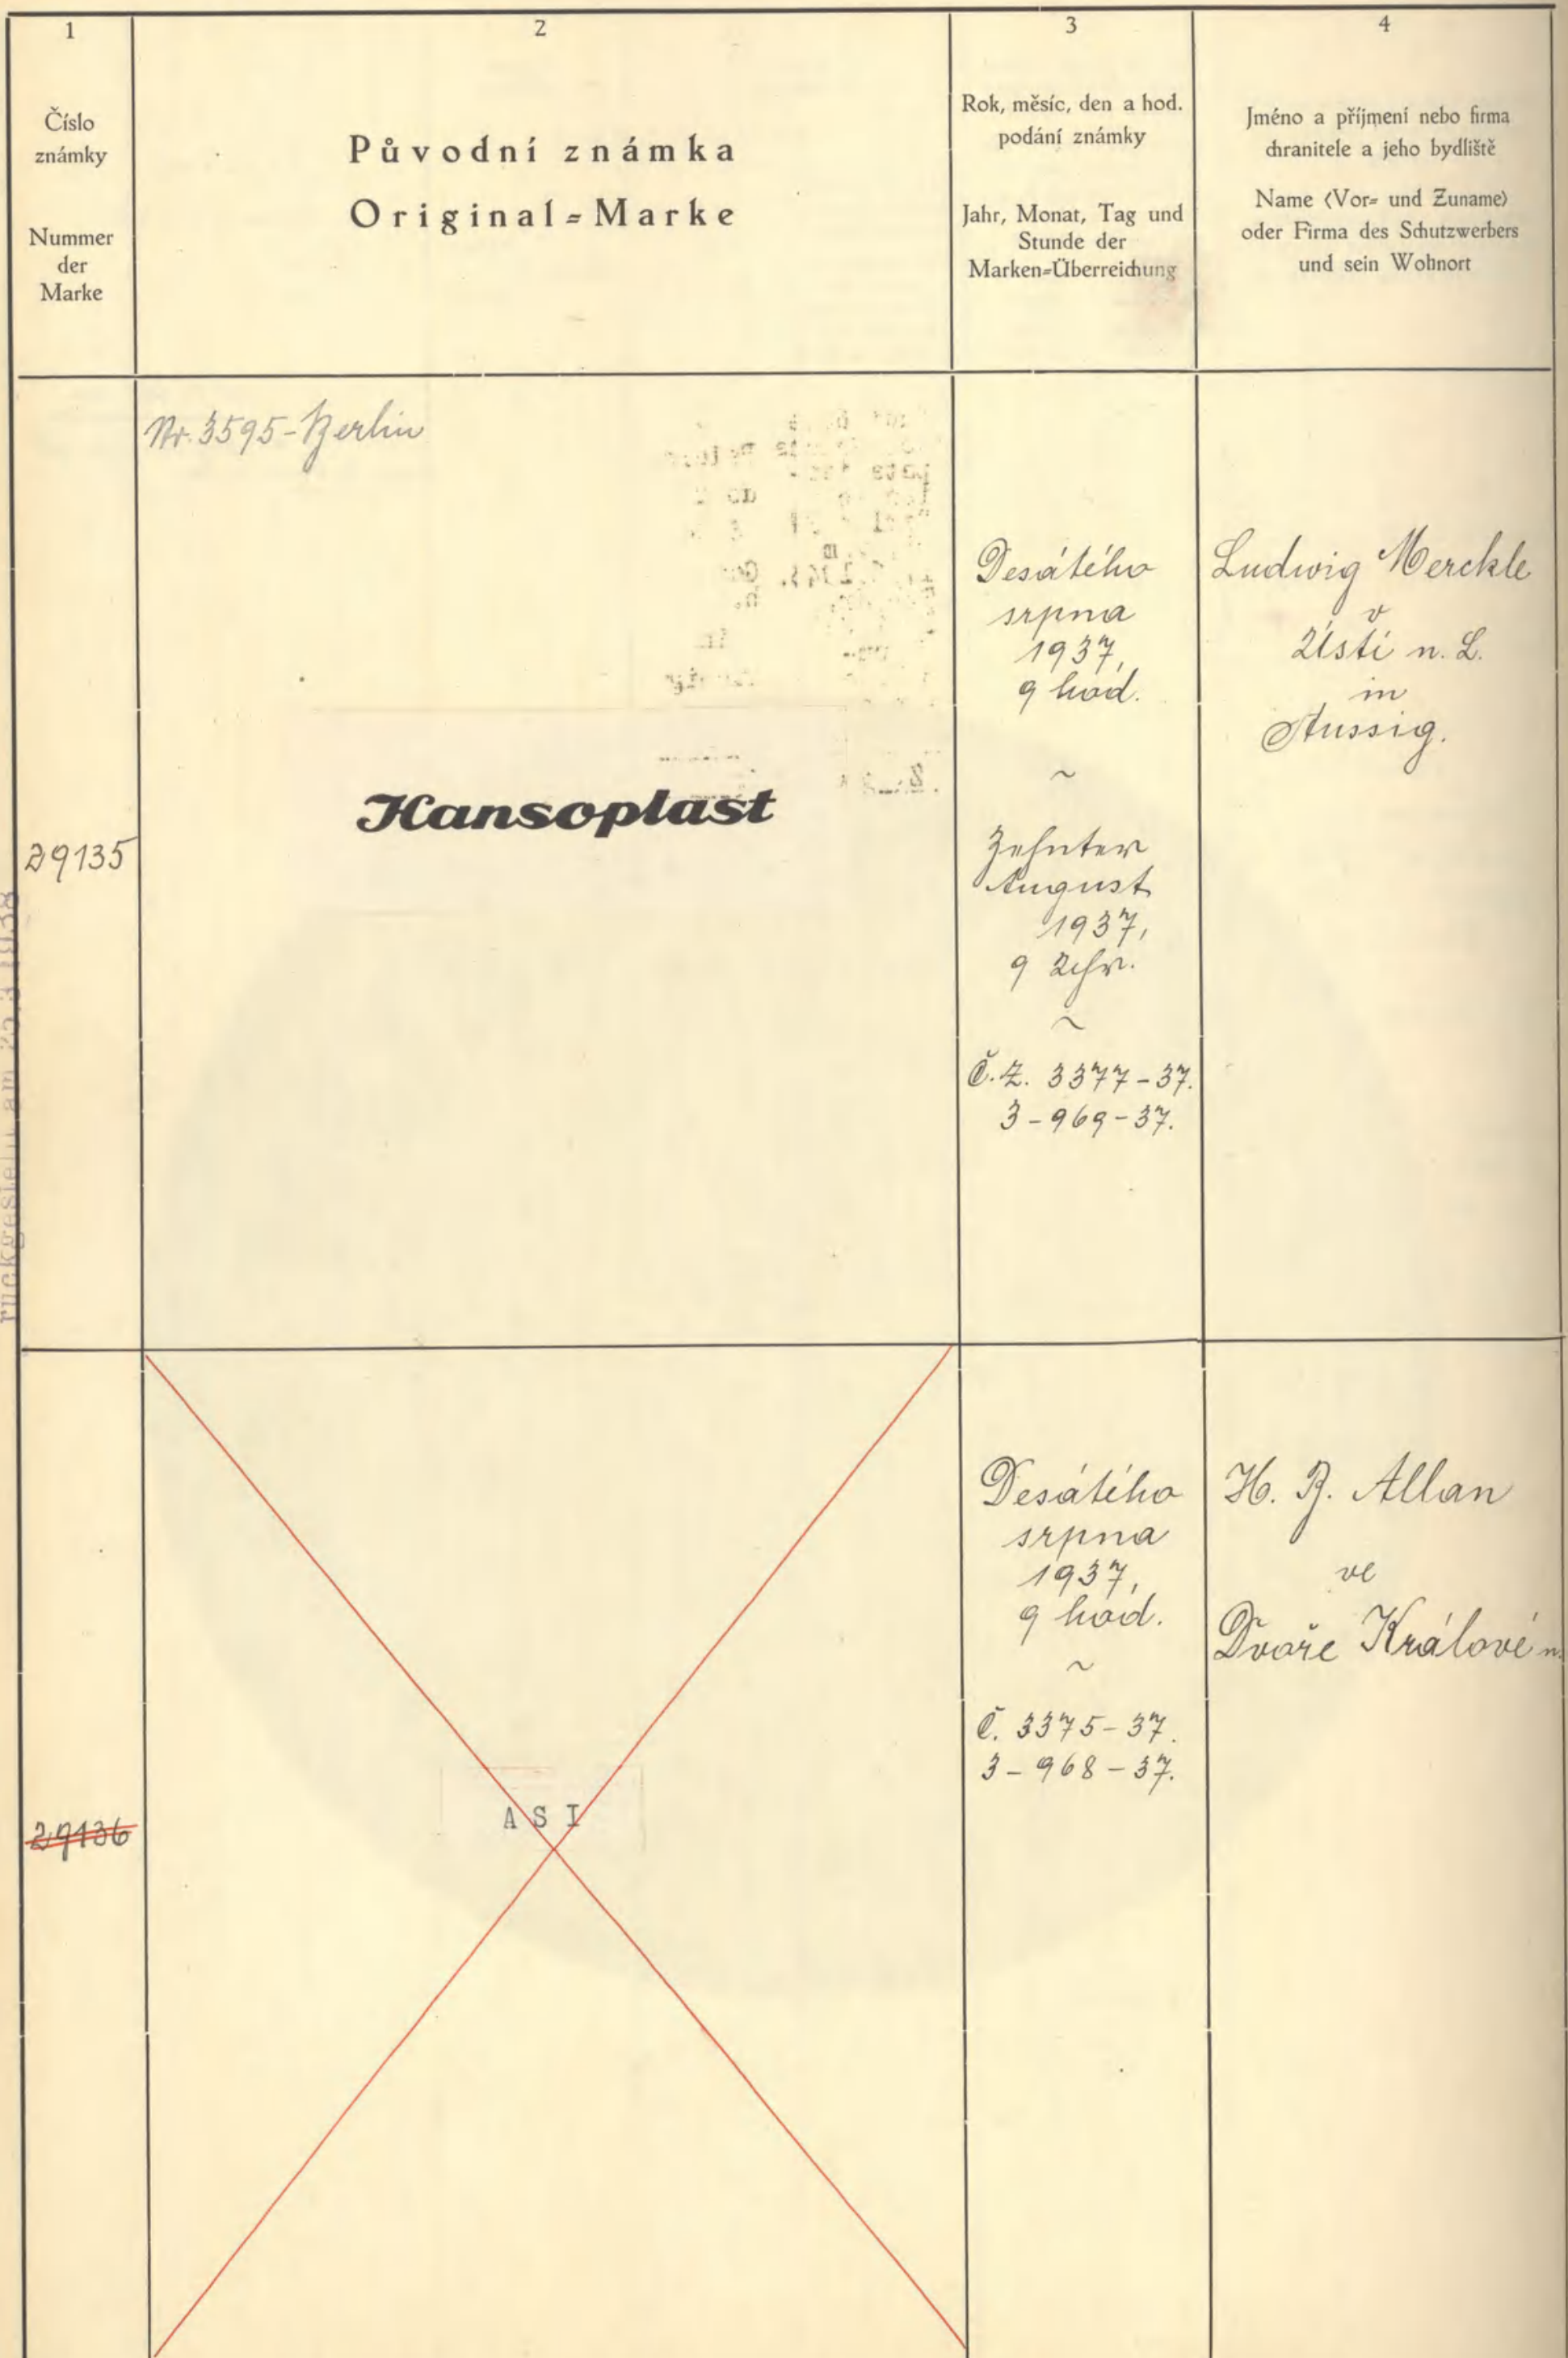 1
Číslo
známky
Nummer
der
Marke
2
Původní známka
Original=Marke
3
Rok, měsíc, den a hod.
podání známky
Jahr, Monat, Tag und
Stunde der
Marken=Überreichung
4
Jméno a příjmení nebo firma
chranitele a jeho bydliště
Name (Vor= und Zuname)
oder Firma des Schutzwerbers
und sein Wohnort
29135
Nr. 3595-Berlin
Hansoplast
Desátého
srpna
1937,
9 hod.
~
Zehnter
August
1937,
9 Uhr.
~
Č.Z. 3377-37.
3-969-37.
Ludwig Merckle
v
Ústí n. L.
in
Aussig.
rückgestellt am 25.3.1938
29136
ASI
Desátého
srpna
1937,
9 hod.
~
Č. 3375-37.
3-968-37.
H. B. Allan
ve
Dvoře Králové n.